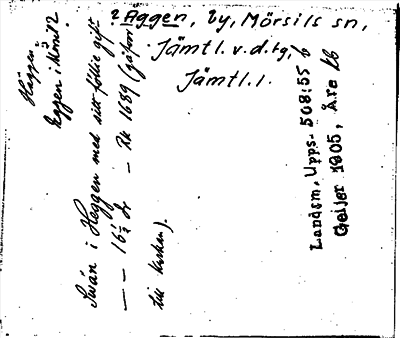 ? Aggen, by, Mörsils sn,
Jämtl. v. d. tg,
Jämtl. l.
Häggen
Heggen i Mörsil?
Swän i Heggen med sitt föllie gift
— — 16½ dr — Rk 1689 (gåfvor
till kirkan).
Landsm. Upps. 508:55 b
Geijer 1905, Åre kb